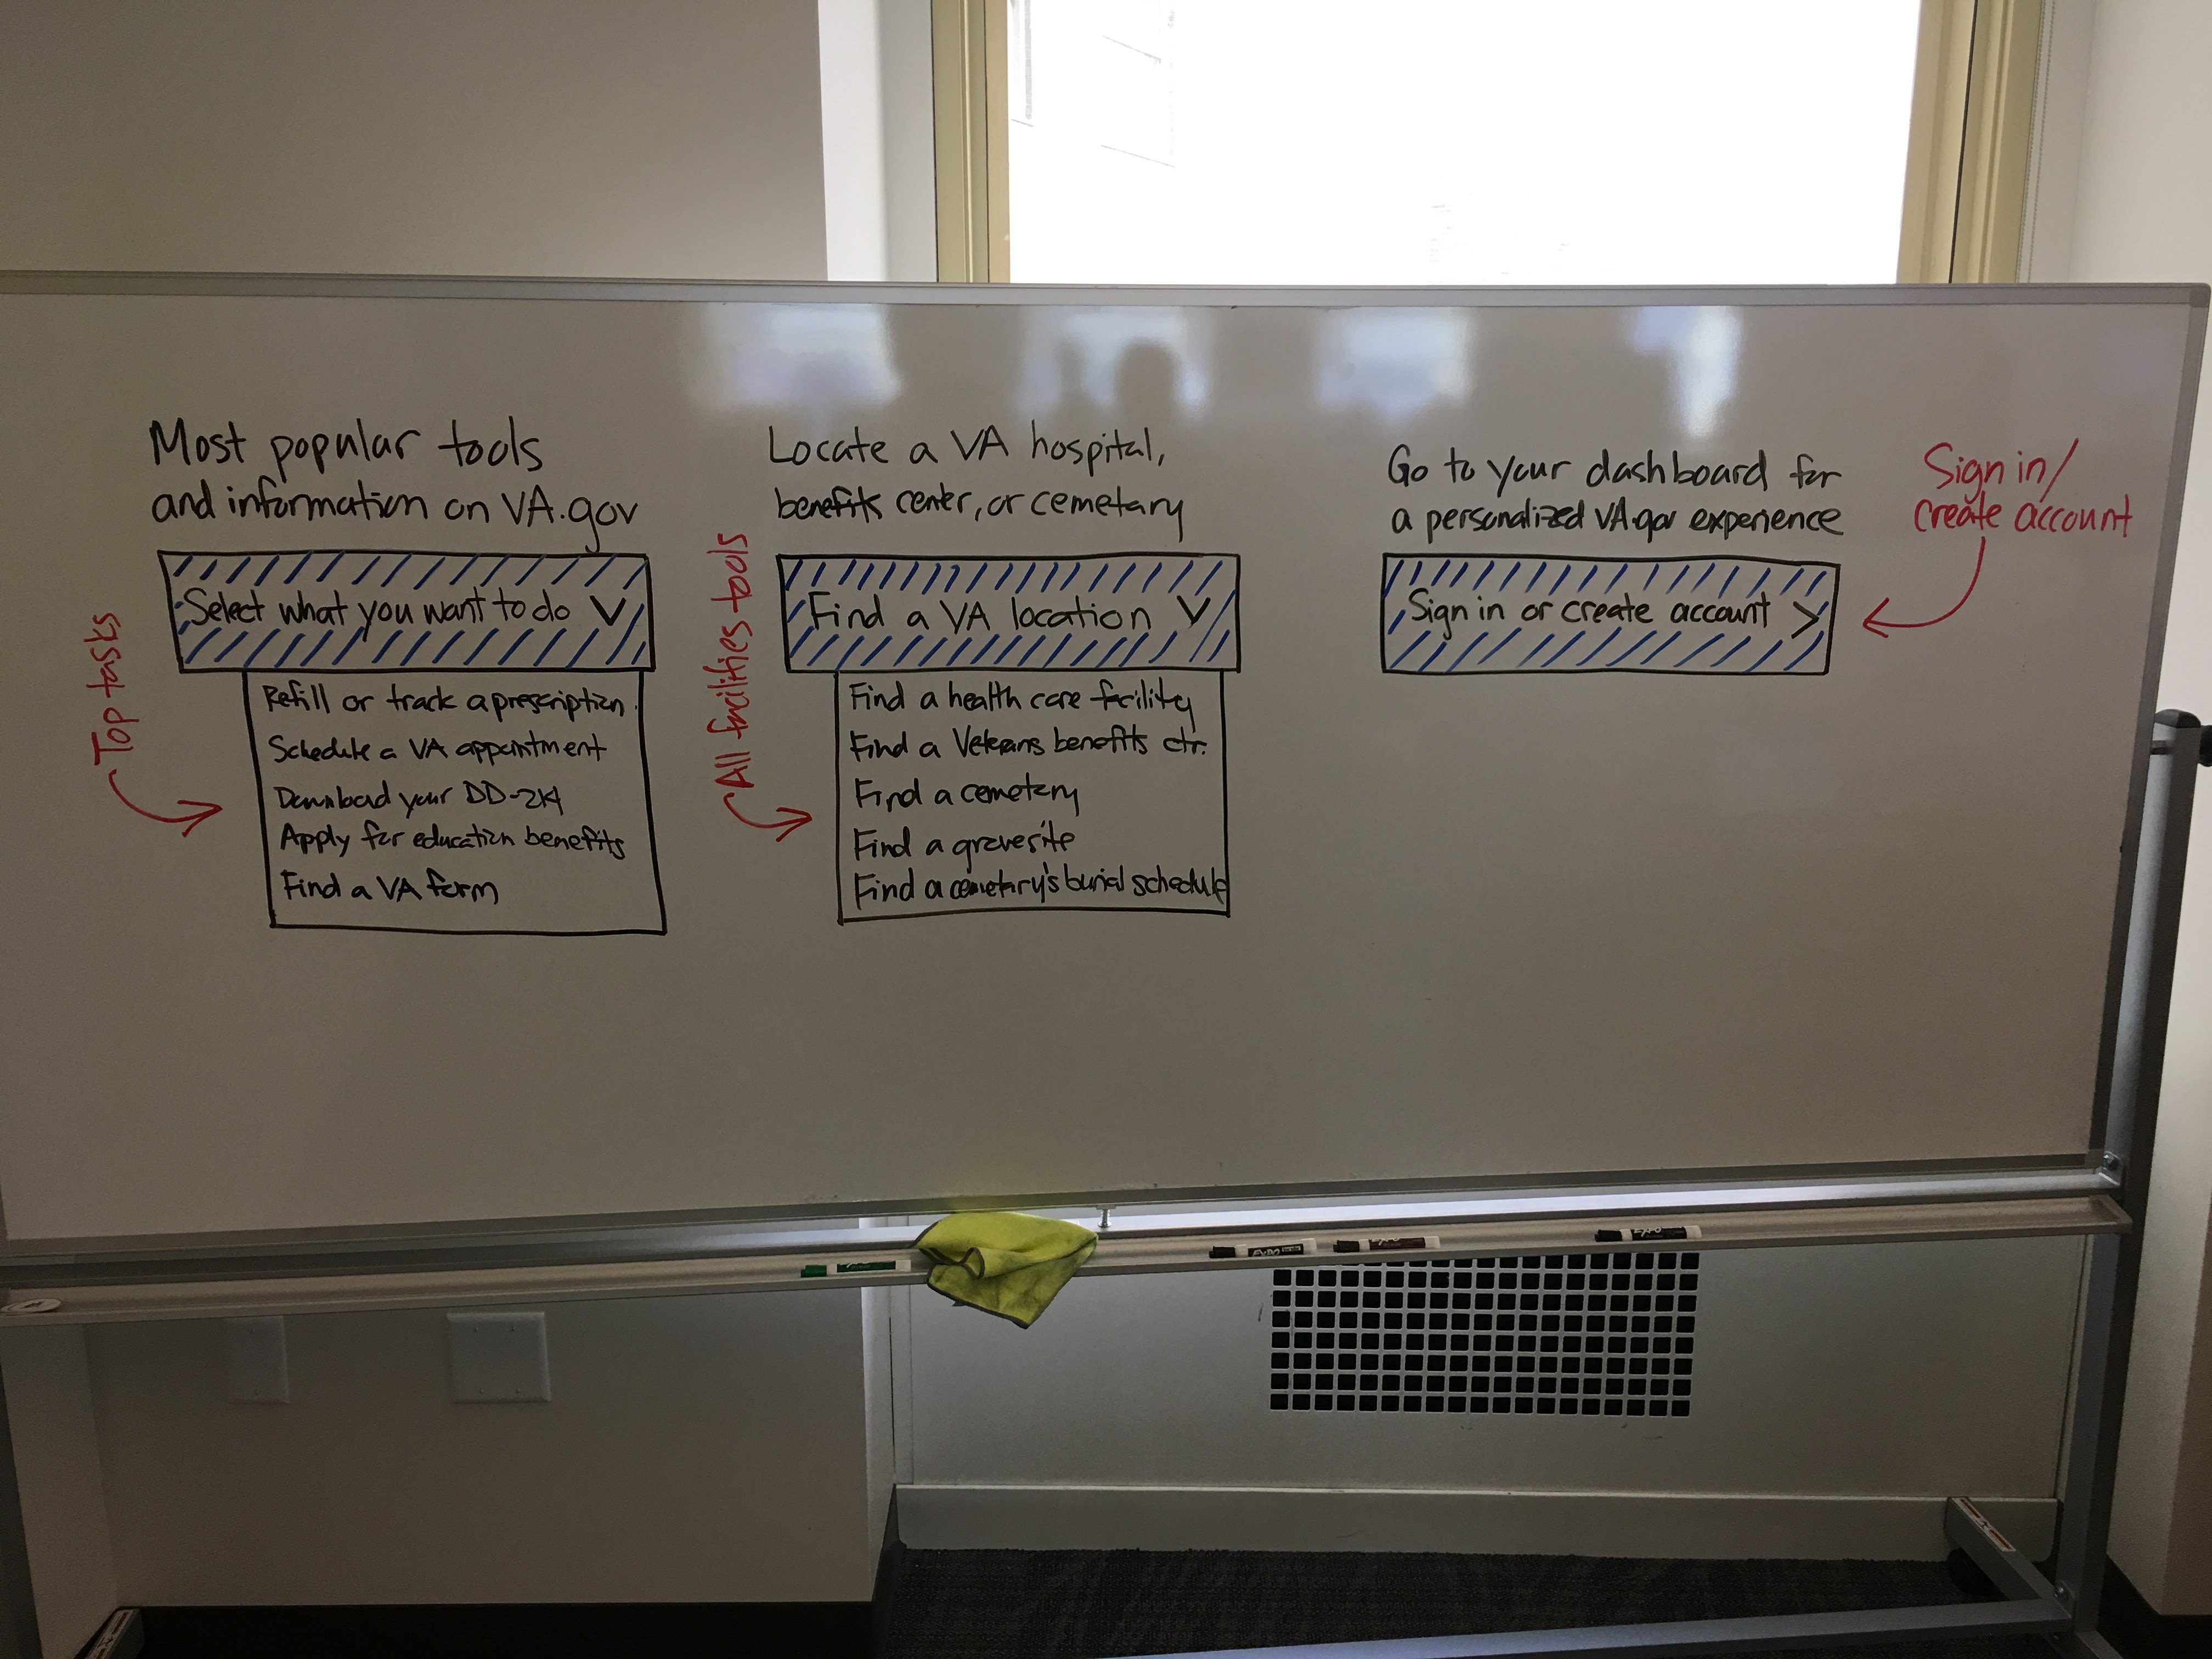 Most popular tools
and information on VA.gov
Select what you want to do V
Top tasks
Refill or track a prescription
Schedule a VA appointment
Download your DD-214
Apply for education benefits
Find a VA form
Locate a VA hospital,
benefits center, or cemetary
Find a VA location V
All facilities tools
Find a health care facility
Find a Veterans benefits ctr.
Find a cemetery
Find a gravesite
Find a cemetary's burial schedule
Go to your dashboard for
a personalized VA.gov experience
Sign in or create account >
Sign in/
create account
EXPO
EXPO
EXPO